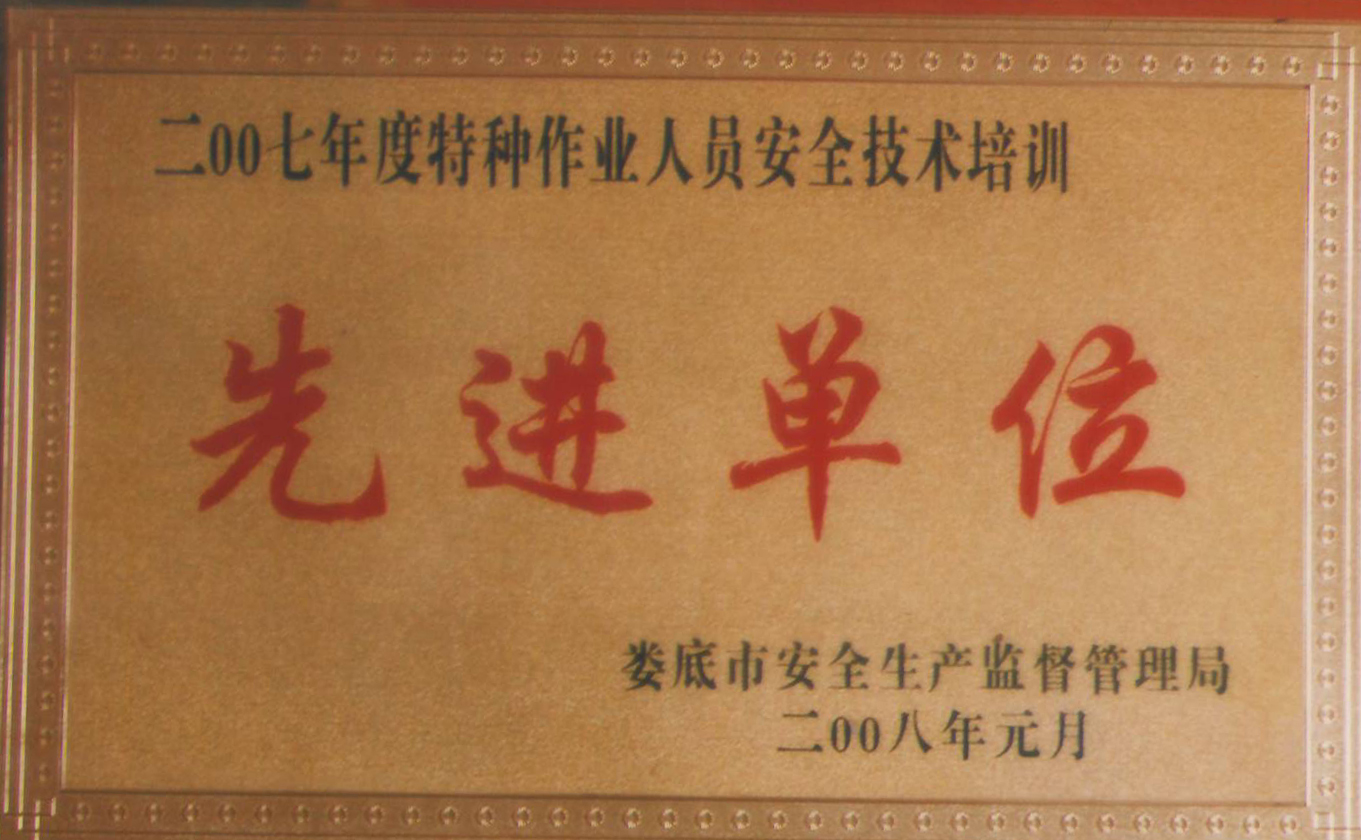 二00七年度特种作业人员安全技术培训
先进单位
娄底市安全生产监督管理局
二00八年元月